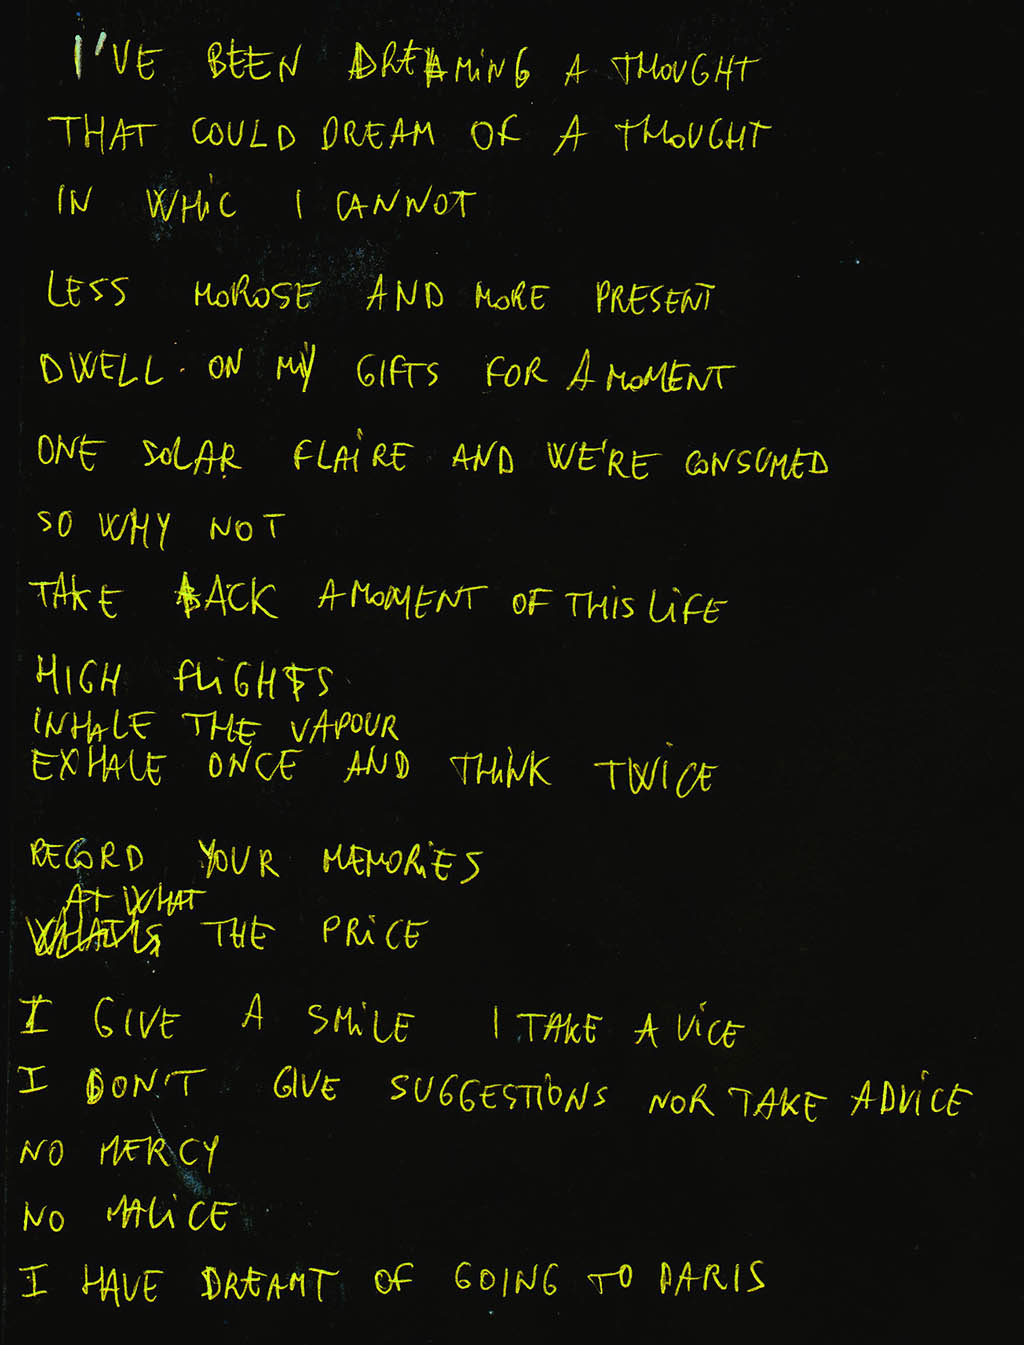 I'VE BEEN DREAMING A THOUGHT
THAT COULD DREAM OF A THOUGHT
IN WHIC I CANNOT
LESS MOROSE AND MORE PRESENT
DWELL ON MY GIFTS FOR A MOMENT
ONE SOLAR FLAIRE AND WE'RE CONSUMED
SO WHY NOT
TAKE BACK A MOMENT OF THIS LIFE
HIGH FLIGHTS
INHALE THE VAPOUR
EXHALE ONCE AND THINK TWICE
RECORD YOUR MEMORIES
AT WHAT
THE PRICE
I GIVE A SMILE I TAKE A VICE
I DON'T GIVE SUGGESTIONS NOR TAKE ADVICE
NO MERCY
NO MALICE
I HAVE DREAMT OF GOING TO PARIS